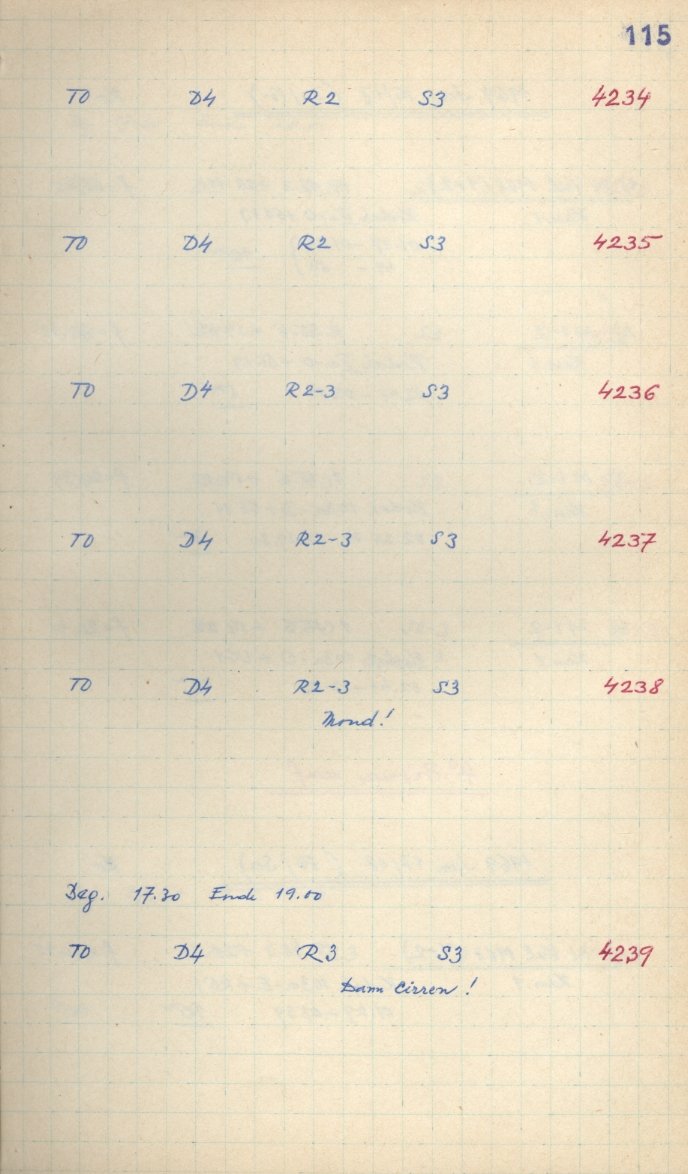 115
TO D4 R2 S3 4234
TO D4 R2 S3 4235
TO D4 R2-3 S3 4236
TO D4 R2-3 S3 4237
TO D4 R2-3 S3 4238
Mond!
Beg. 17.30 Ende 19.00
TO D4 R3 S3 4239
Dann Cirren!